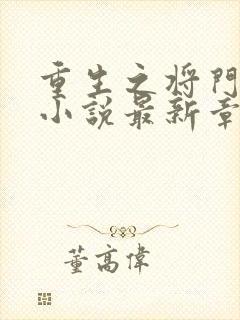 重生之将門
小説最新章
董高偉